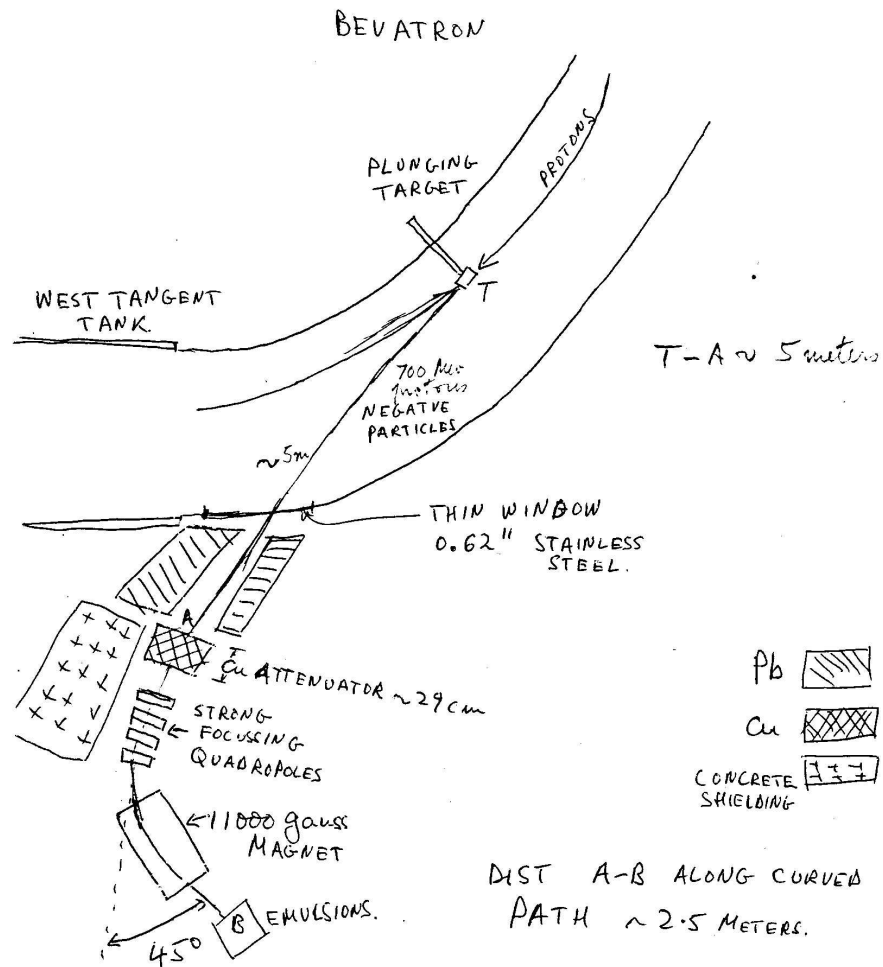 BEVATRON
PROTONS
PLUNGING
TARGET
T
WEST TANGENT
TANK.
T-A ~ 5 meters
700 Mev
protons
NEGATVE
PARTICLES
~5m
THIN WINDOW
0.62" STAINLESS
STEEL.
A
Cu ATTENUATOR ~29cm
STRONG
FOCUSSING
QUADROPOLES
Pb
Cu
CONCRETE
SHIELDING
11000 gauss
MAGNET
B
EMULSIONS.
45°
DIST A-B ALONG CURVED
PATH ~2.5 METERS.